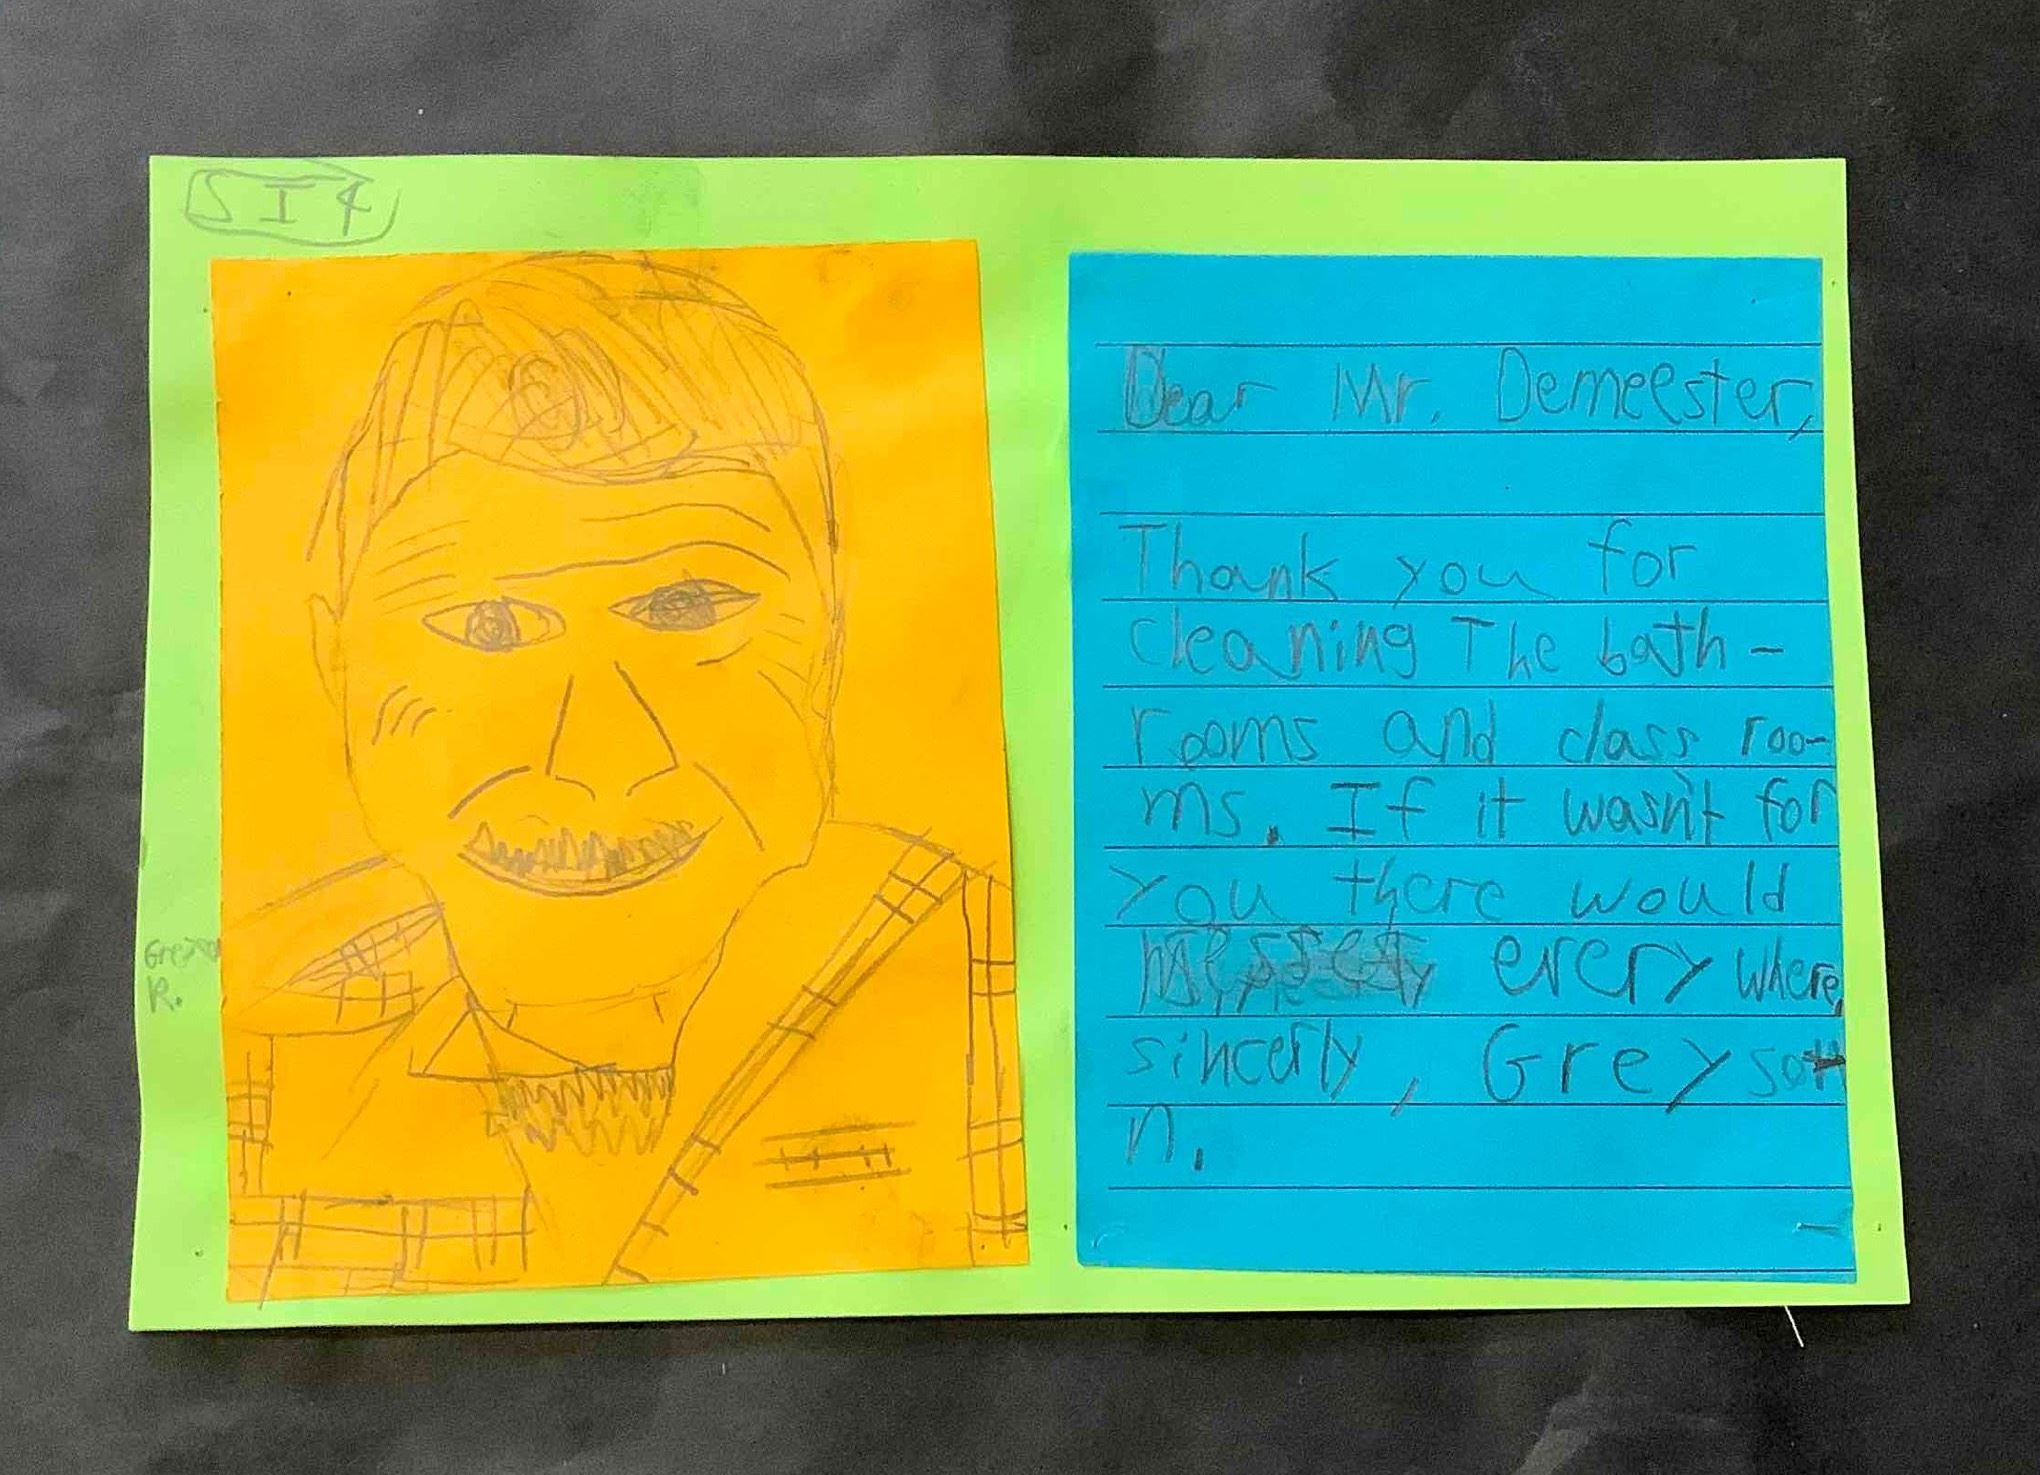 SI4
Greyson
R.
Dear Mr. Demeester,
Thank you for
cleaning The bath-
rooms and class roo-
ms. If it wasn't for
you there would
messes every where,
sincerly, Greyso
n.